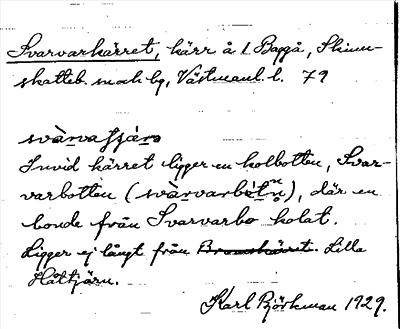 Svarvarkärret, kärr å 1 Baggå, Skinn-
skatteb. snok bg, Västmanl. l. 79
svàrvaɟɟärə
Invid kärret ligger en kolbotten, Svar-
varbotten (svàrvarbòtn), där en
bonde från Svarvarbo kolat.
Ligger ej långt från Lilla
Håltjärn.
Karl Björkman 1929.